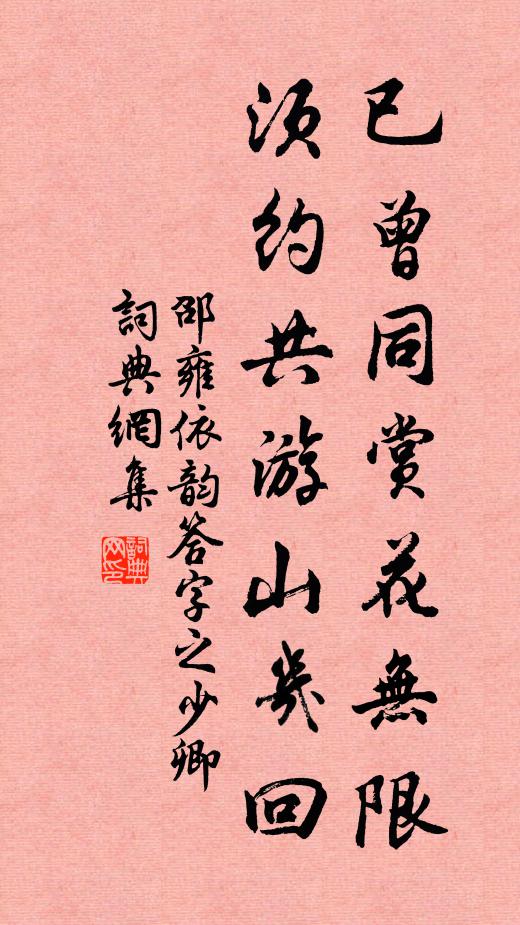 已曾同賞花無限
須約共游山幾回
邵雍依韵答字之少卿
詞典網集
詞典網印